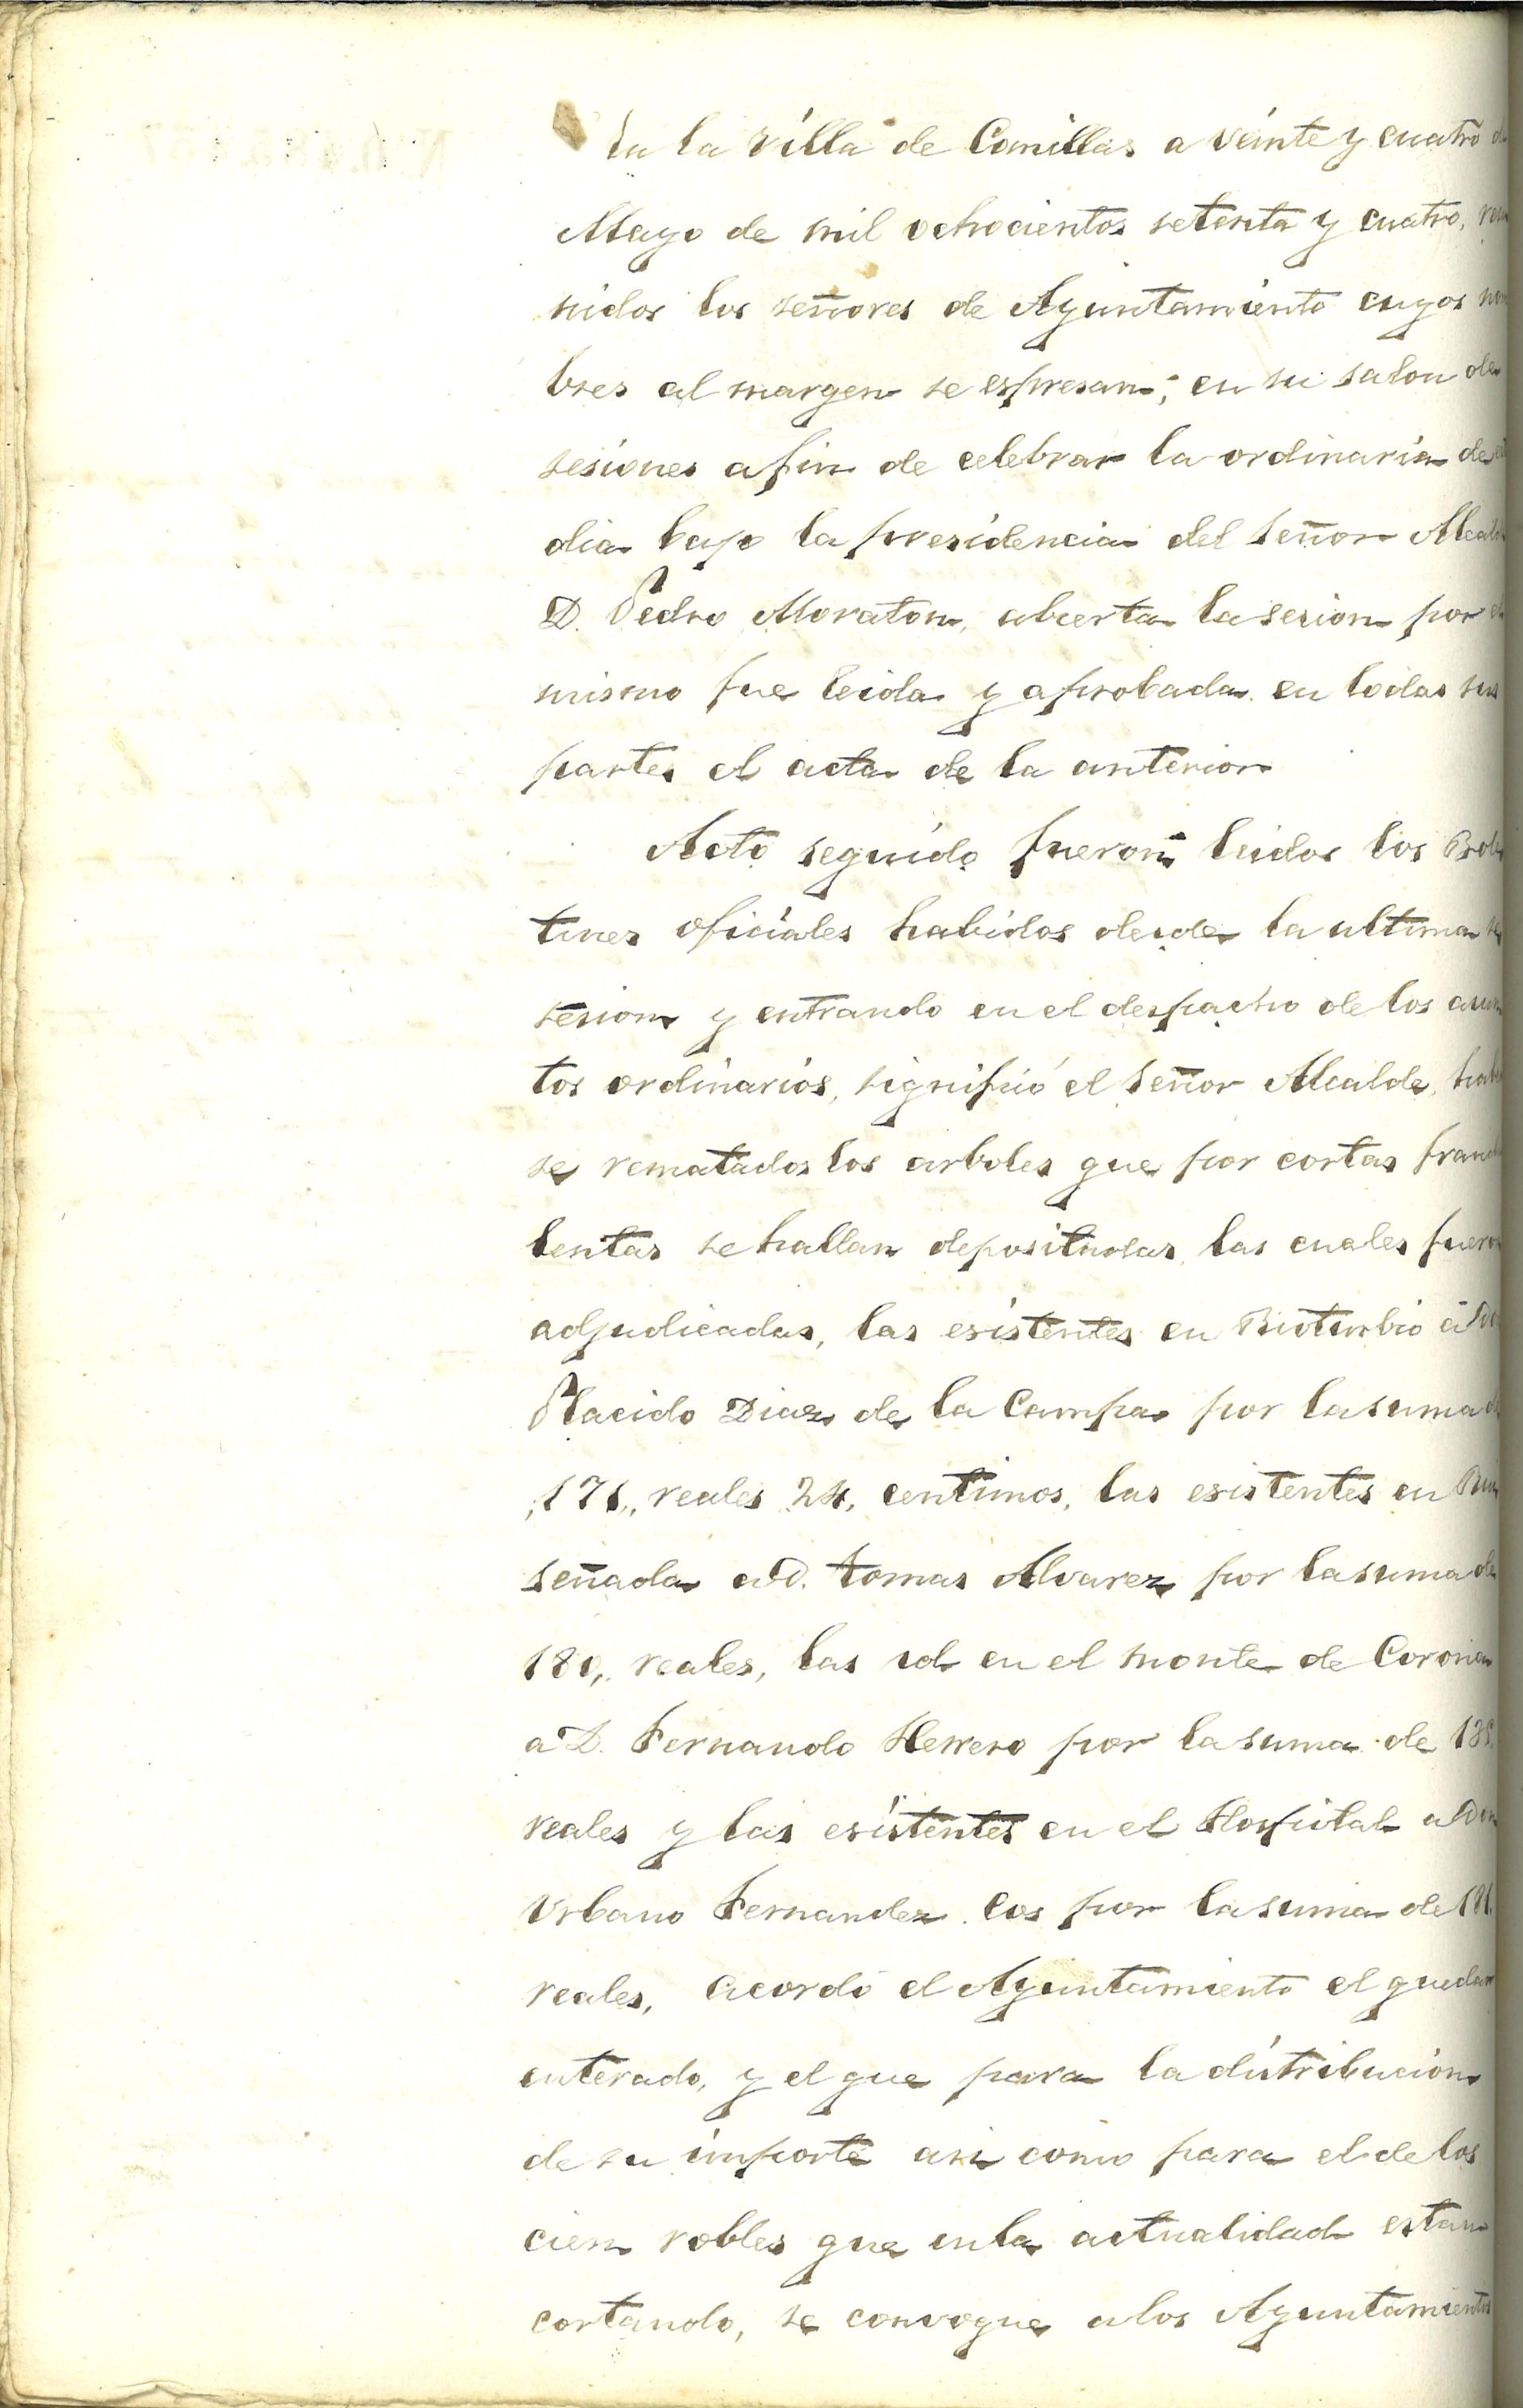 En la villa de Comillas a veinte y cuatro de
Mayo de mil ochocientos setenta y cuatro, reu
nidos los señores de Ayuntamiento cuyos nom
bres al margen se espresan; en su salon de
sesiones a fin de celebrar la ordinaria de
dia bajo la presidencia del Señor Alcalde
D. Pedro Moraton, abierta la sesion por el
mismo fue leida y aprobada en todas sus
partes el acta de la anterior
Acto seguido fueron leidos los Bole
tines oficiales habidos desde la ultima se
sesion y entrando en el despacho de los asun
tos ordinarios, significó el Señor Alcalde, haber
se rematados los arboles que por cortas fraudu
lentas se hallan depositadas, las cuales fueron
adjudicadas, las esistentes en Rioturbio á Don
Placido Diaz de la Campa por la suma de
171, reales 24, centimos, las esistentes en Rui
señada a D. tomas Alvarez por la suma de
180, reales, las id en el monte de Corona
a D. Fernando Herrero por la suma de
reales y las esistentes en el Hospital a Don
Urbano Fernandez Cos por la suma de
reales, acordó el Ayuntamiento el quedar
enterado, y el que para la distribucion
de su importe asi como para el de los
cien robles que en la actualidad estan
cortando, se convoque a los Ayuntamientos